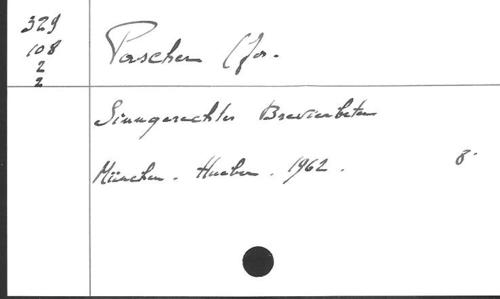 329
108
2
2
Pascher (Jos.
Sinngerechtes Brevierbeten
München. Hueber. 1962.
8°